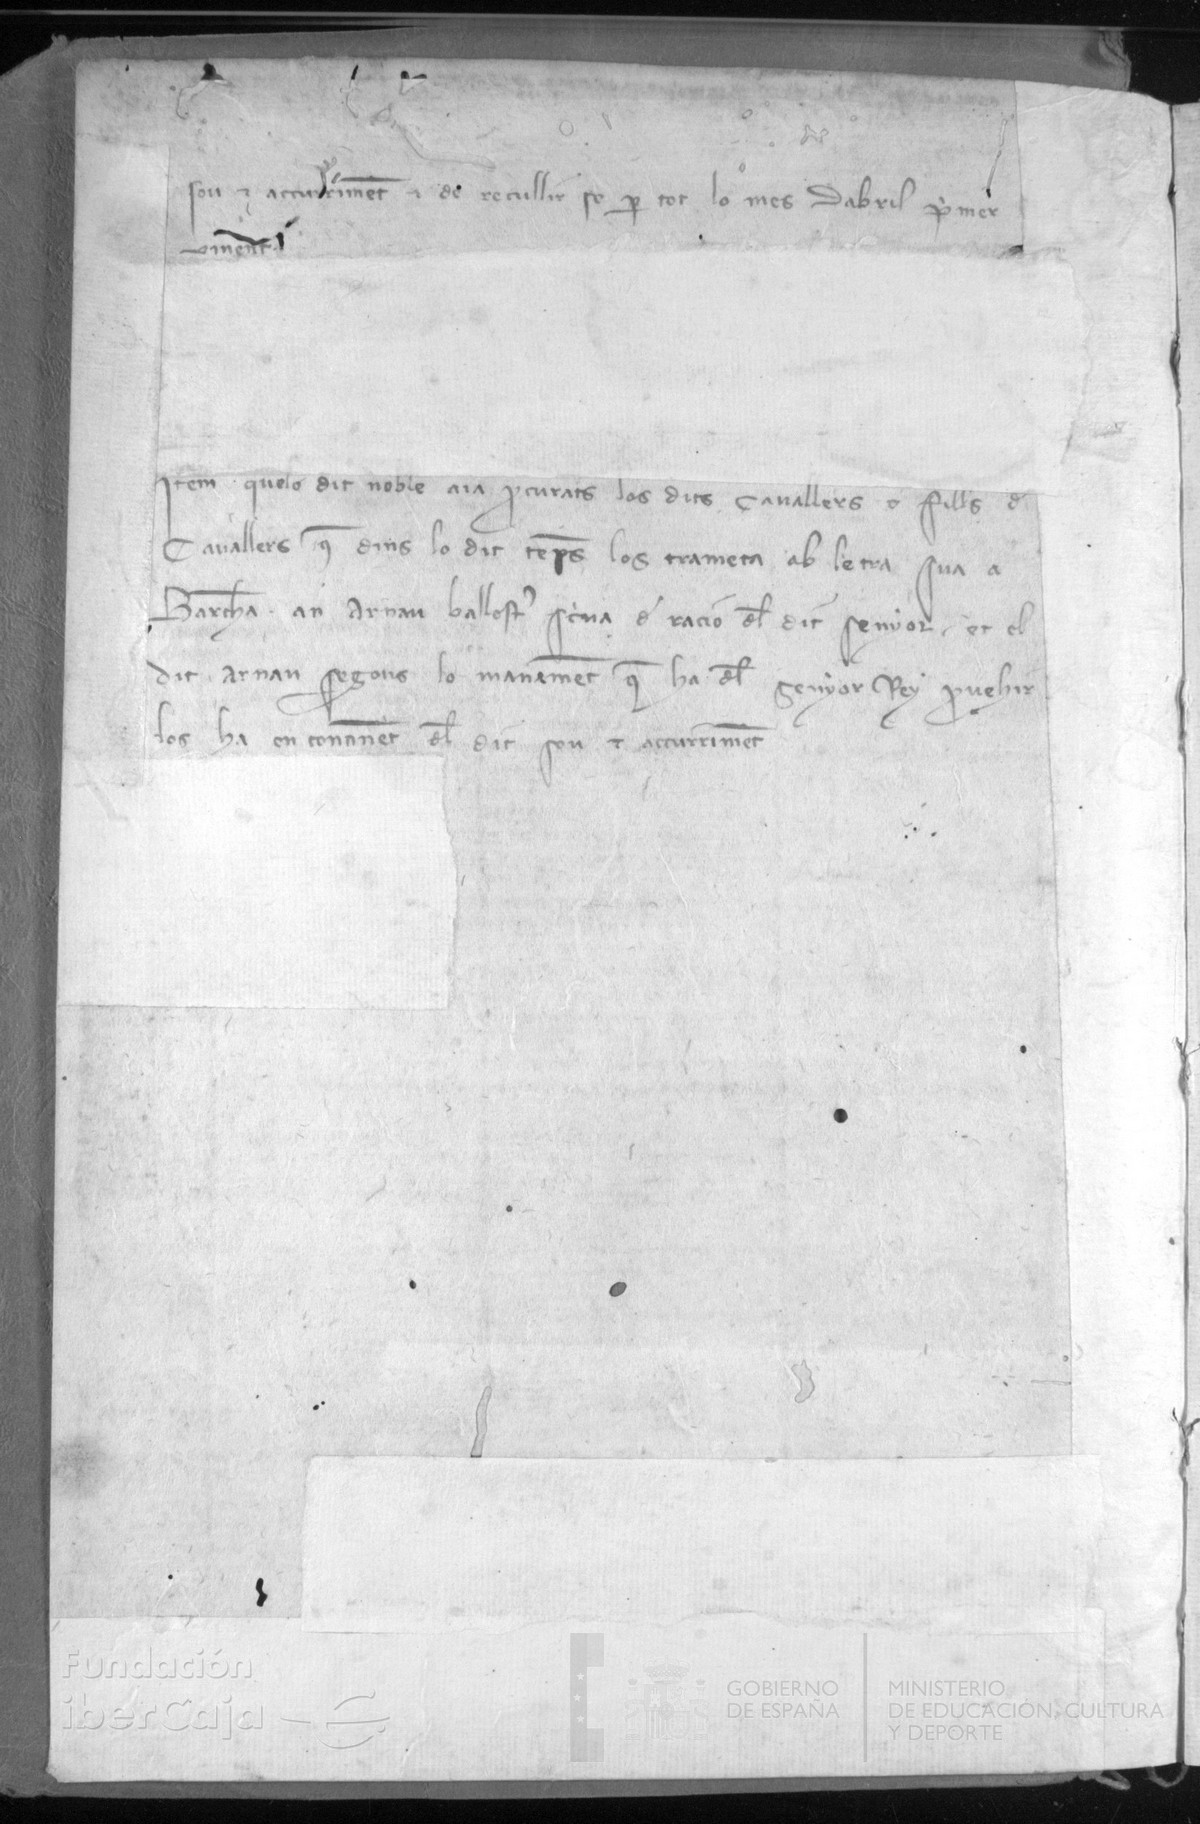 sou ⁊ accurrimẽt ⁊ de recullir se ꝑ tot lo mes Dabril pͥmer
vinent
Item quelo dit noble aia ꝓcurats los dits Cavallers o fills đ
Cavallers q̃ dins lo dit temps los trameta ab letra sua a
Barch̃a. an Arnau ballest̉ scͥua đ racio đl dit senyor. et el
dit Arnau segons lo manamẽt q̃ ha đl senyor Rey ꝓvehir
los ha en continẽt đl dit sou ⁊ accurrimẽt
Fundación
iberCaja
GOBIERNO
DE ESPAÑA
MINISTERIO
DE EDUCACIÓN, CULTURA
Y DEPORTE